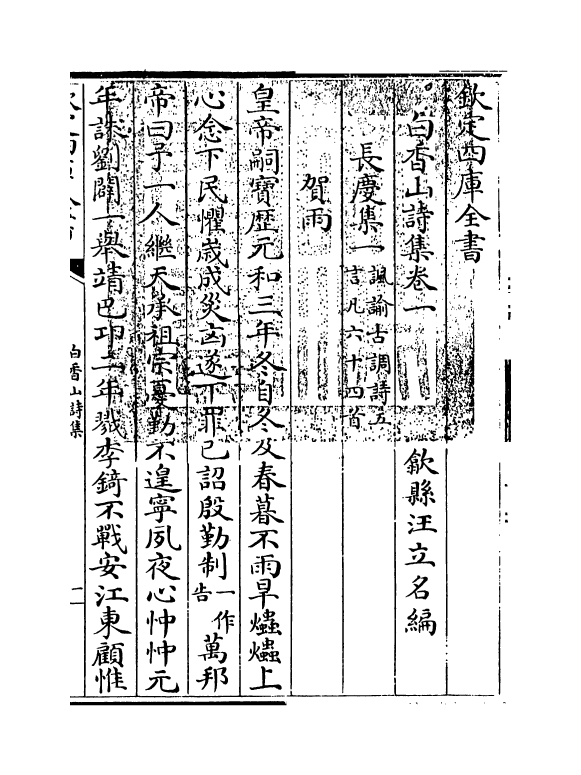 欽定四庫全書
白香山詩集卷一 歙縣汪立名編
長慶集一 諷諭古調詩五言凡六十四首
賀雨
皇帝嗣寶歴元和三年冬自冬及春暮不雨旱爞爞上
心念下民懼歳成災凶遂下罪已詔殷勤制一作告萬邦
帝曰予一人繼天承祖宗憂勤不遑寧夙夜心忡忡元
年誅劉闢一舉靖巴卭二年戮李錡不戰安江東顧惟
白香山詩集
二